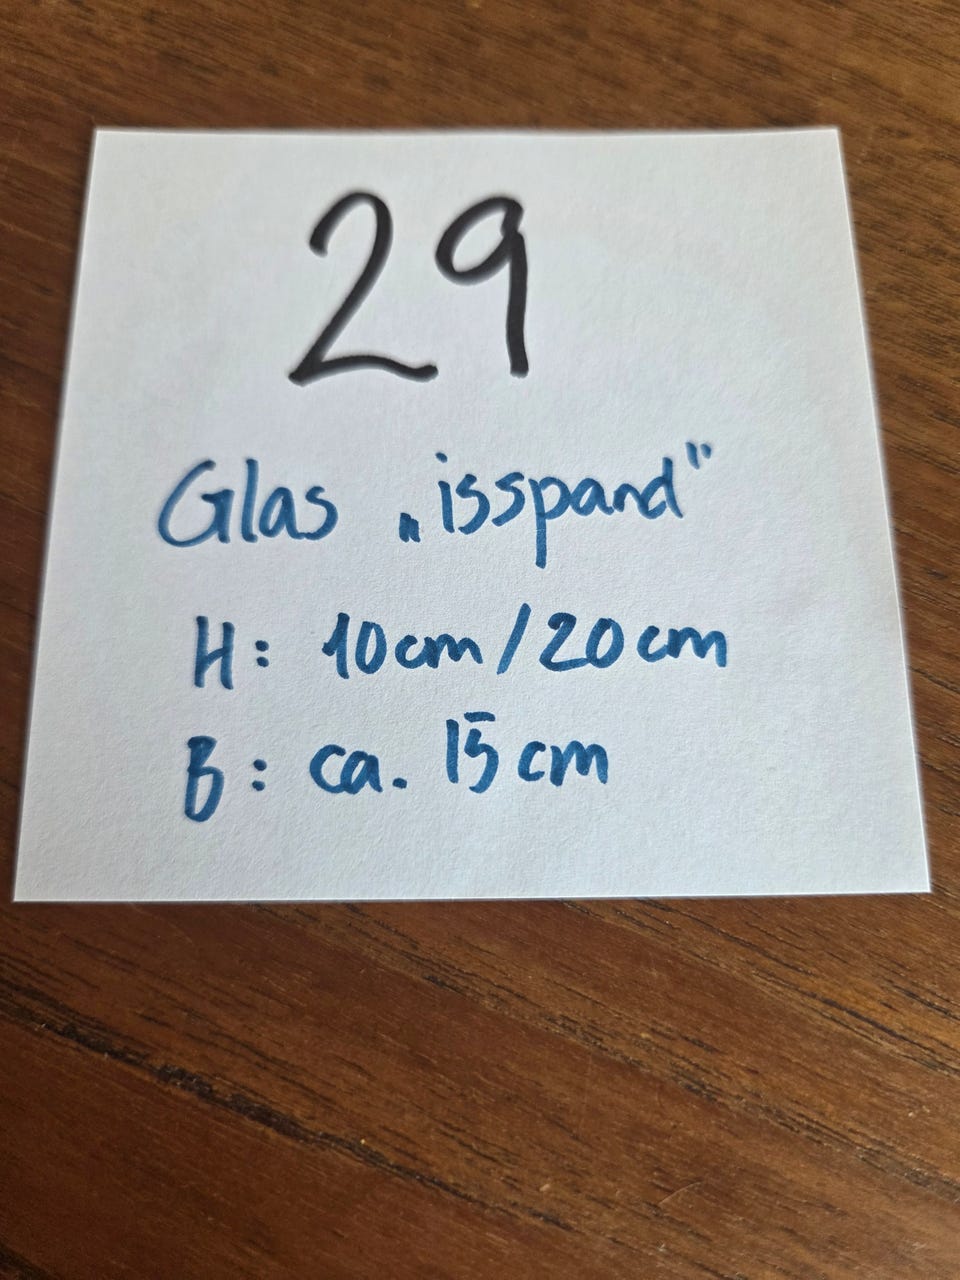 29
Glas „isspand"
H: 10cm/20cm
B: ca. 15cm